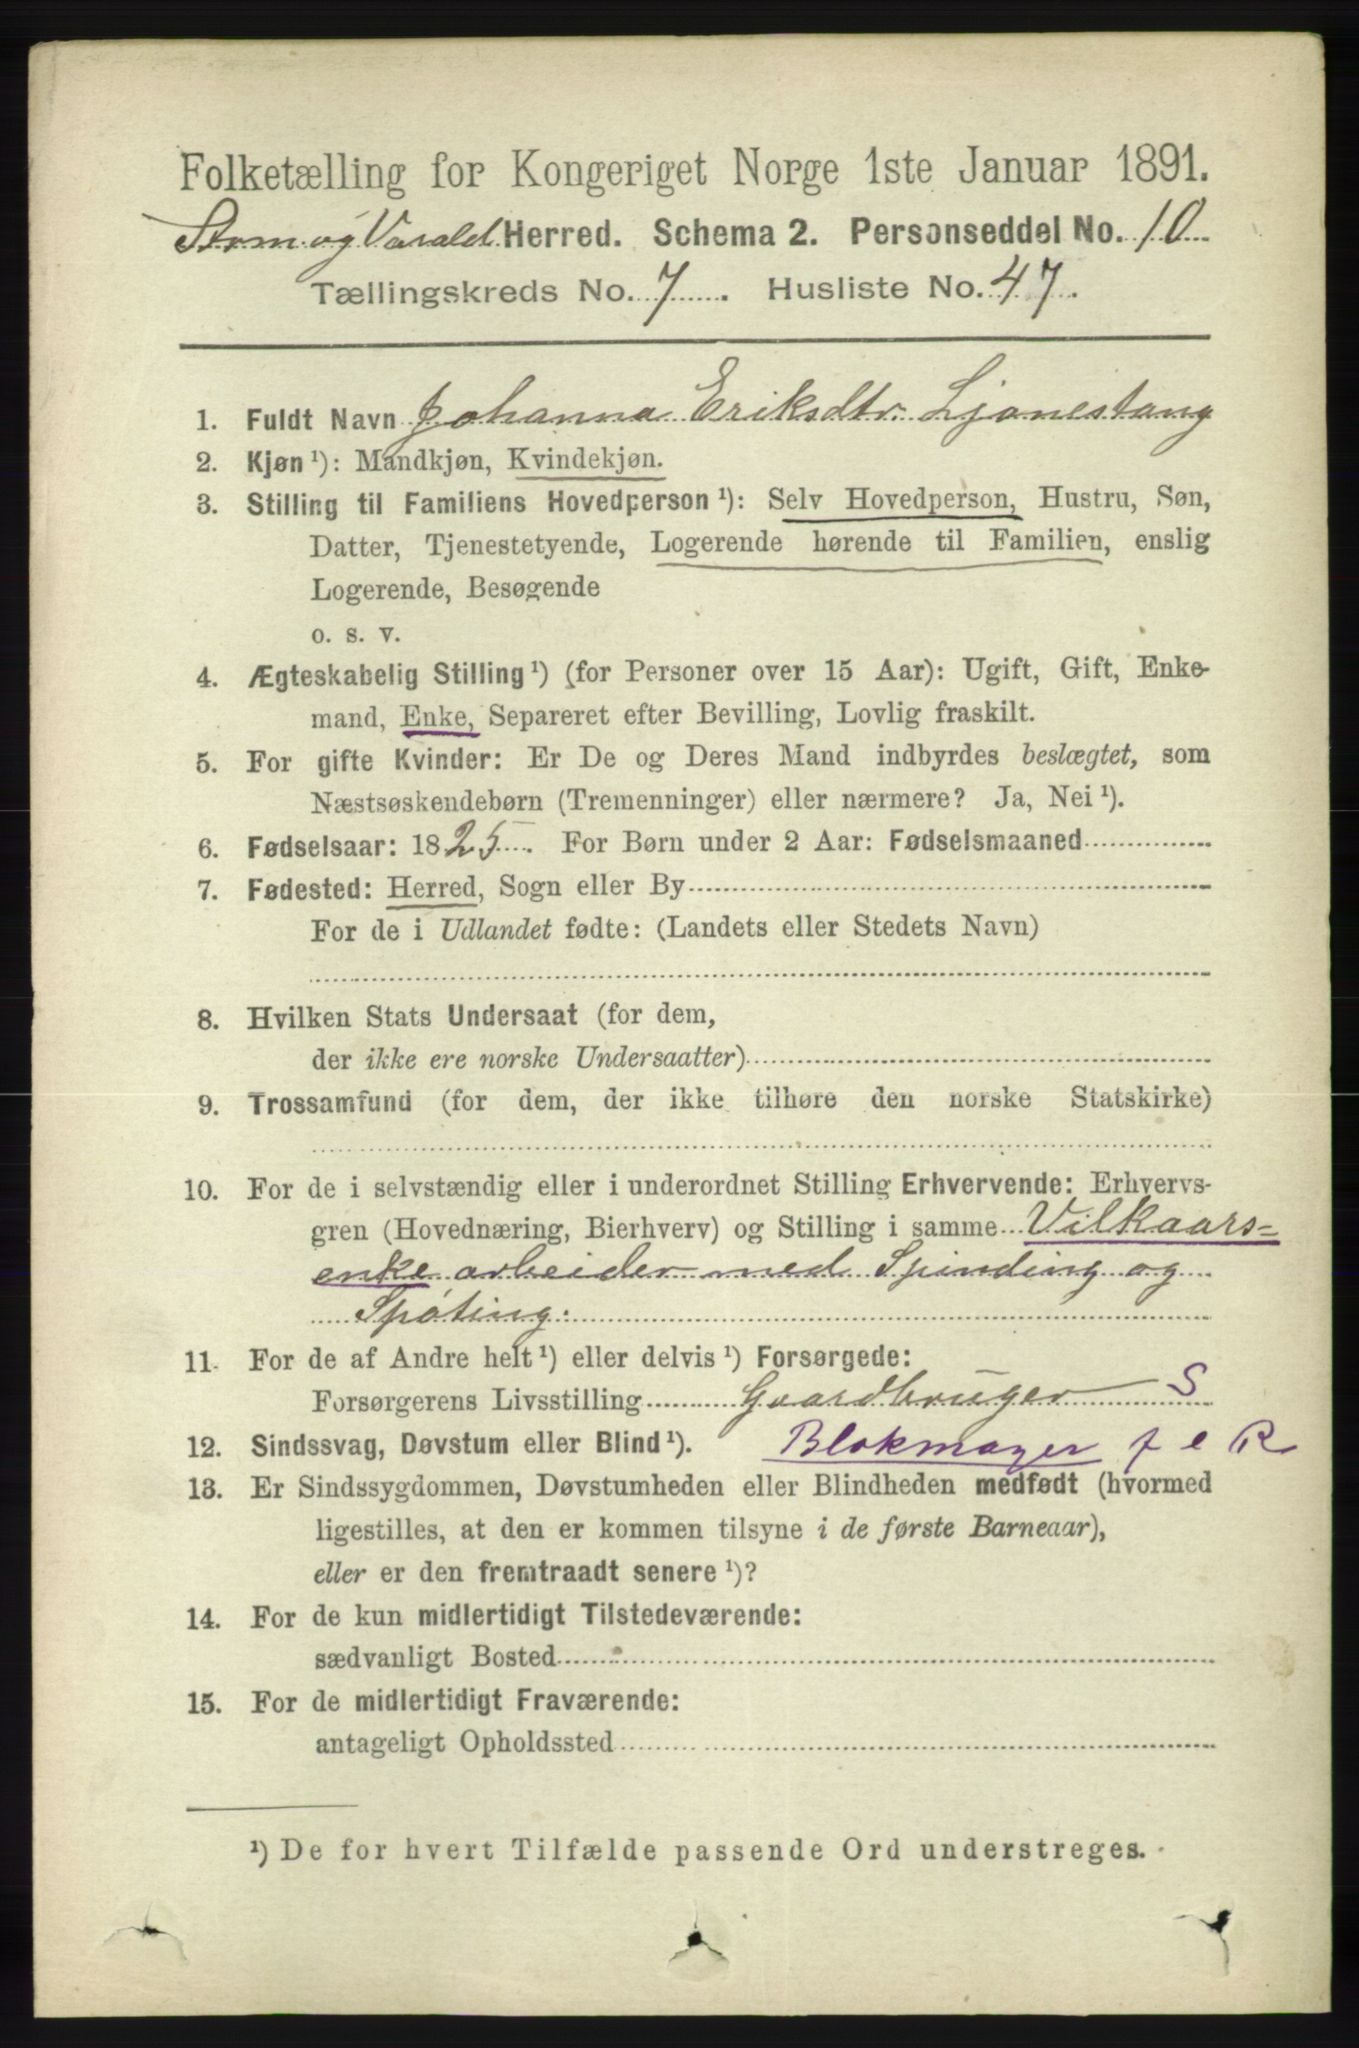 Folketælling for Kongeriget Norge 1ste Januar 1891.
Strm og Varald Herred. Schema 2. Personseddel No. 10
Tællingskreds No. 7. Husliste No. 47.
1. Fuldt Navn Johanna Eriksdtr. Ljonestang
2. Kjøn ¹): Mandkjøn, Kvindekjøn.
3. Stilling til Familiens Hovedperson ¹): Selv Hovedperson, Hustru, Søn,
Datter, Tjenestetyende, Logerende hørende til Familien, enslig
Logerende, Besøgende
o. s. v.
4. Ægteskabelig Stilling ¹) (for Personer over 15 Aar): Ugift, Gift, Enke-
mand, Enke, Separeret efter Bevilling, Lovlig fraskilt.
5. For gifte Kvinder: Er De og Deres Mand indbyrdes beslægtet, som
Næstsøskendebørn (Tremenninger) eller nærmere? Ja, Nei ¹).
6. Fødselsaar: 1825. For Børn under 2 Aar: Fødselsmaaned
7. Fødested: Herred, Sogn eller By
For de i Udlandet fødte: (Landets eller Stedets Navn)
8. Hvilken Stats Undersaat (for dem,
der ikke ere norske Undersaatter)
9. Trossamfund (for dem, der ikke tilhøre den norske Statskirke)
10. For de i selvstændig eller i underordnet Stilling Erhvervende: Erhvervs-
gren (Hovednæring, Bierhverv) og Stilling i samme Vilkaars-
enke arbeider med Spinding og
Spöting.
11. For de af Andre helt ¹) eller delvis ¹) Forsørgede:
Forsørgerens Livsstilling Gaardbruger S
12. Sindssvag, Døvstum eller Blind ¹). Blokmager f e R
13. Er Sindssygdommen, Døvstumheden eller Blindheden medfødt (hvormed
ligestilles, at den er kommen tilsyne i de første Barneaar),
eller er den fremtraadt senere ¹)?
14. For de kun midlertidigt Tilstedeværende:
sædvanligt Bosted
15. For de midlertidigt Fraværende:
antageligt Opholdssted
¹) De for hvert Tilfælde passende Ord understreges.